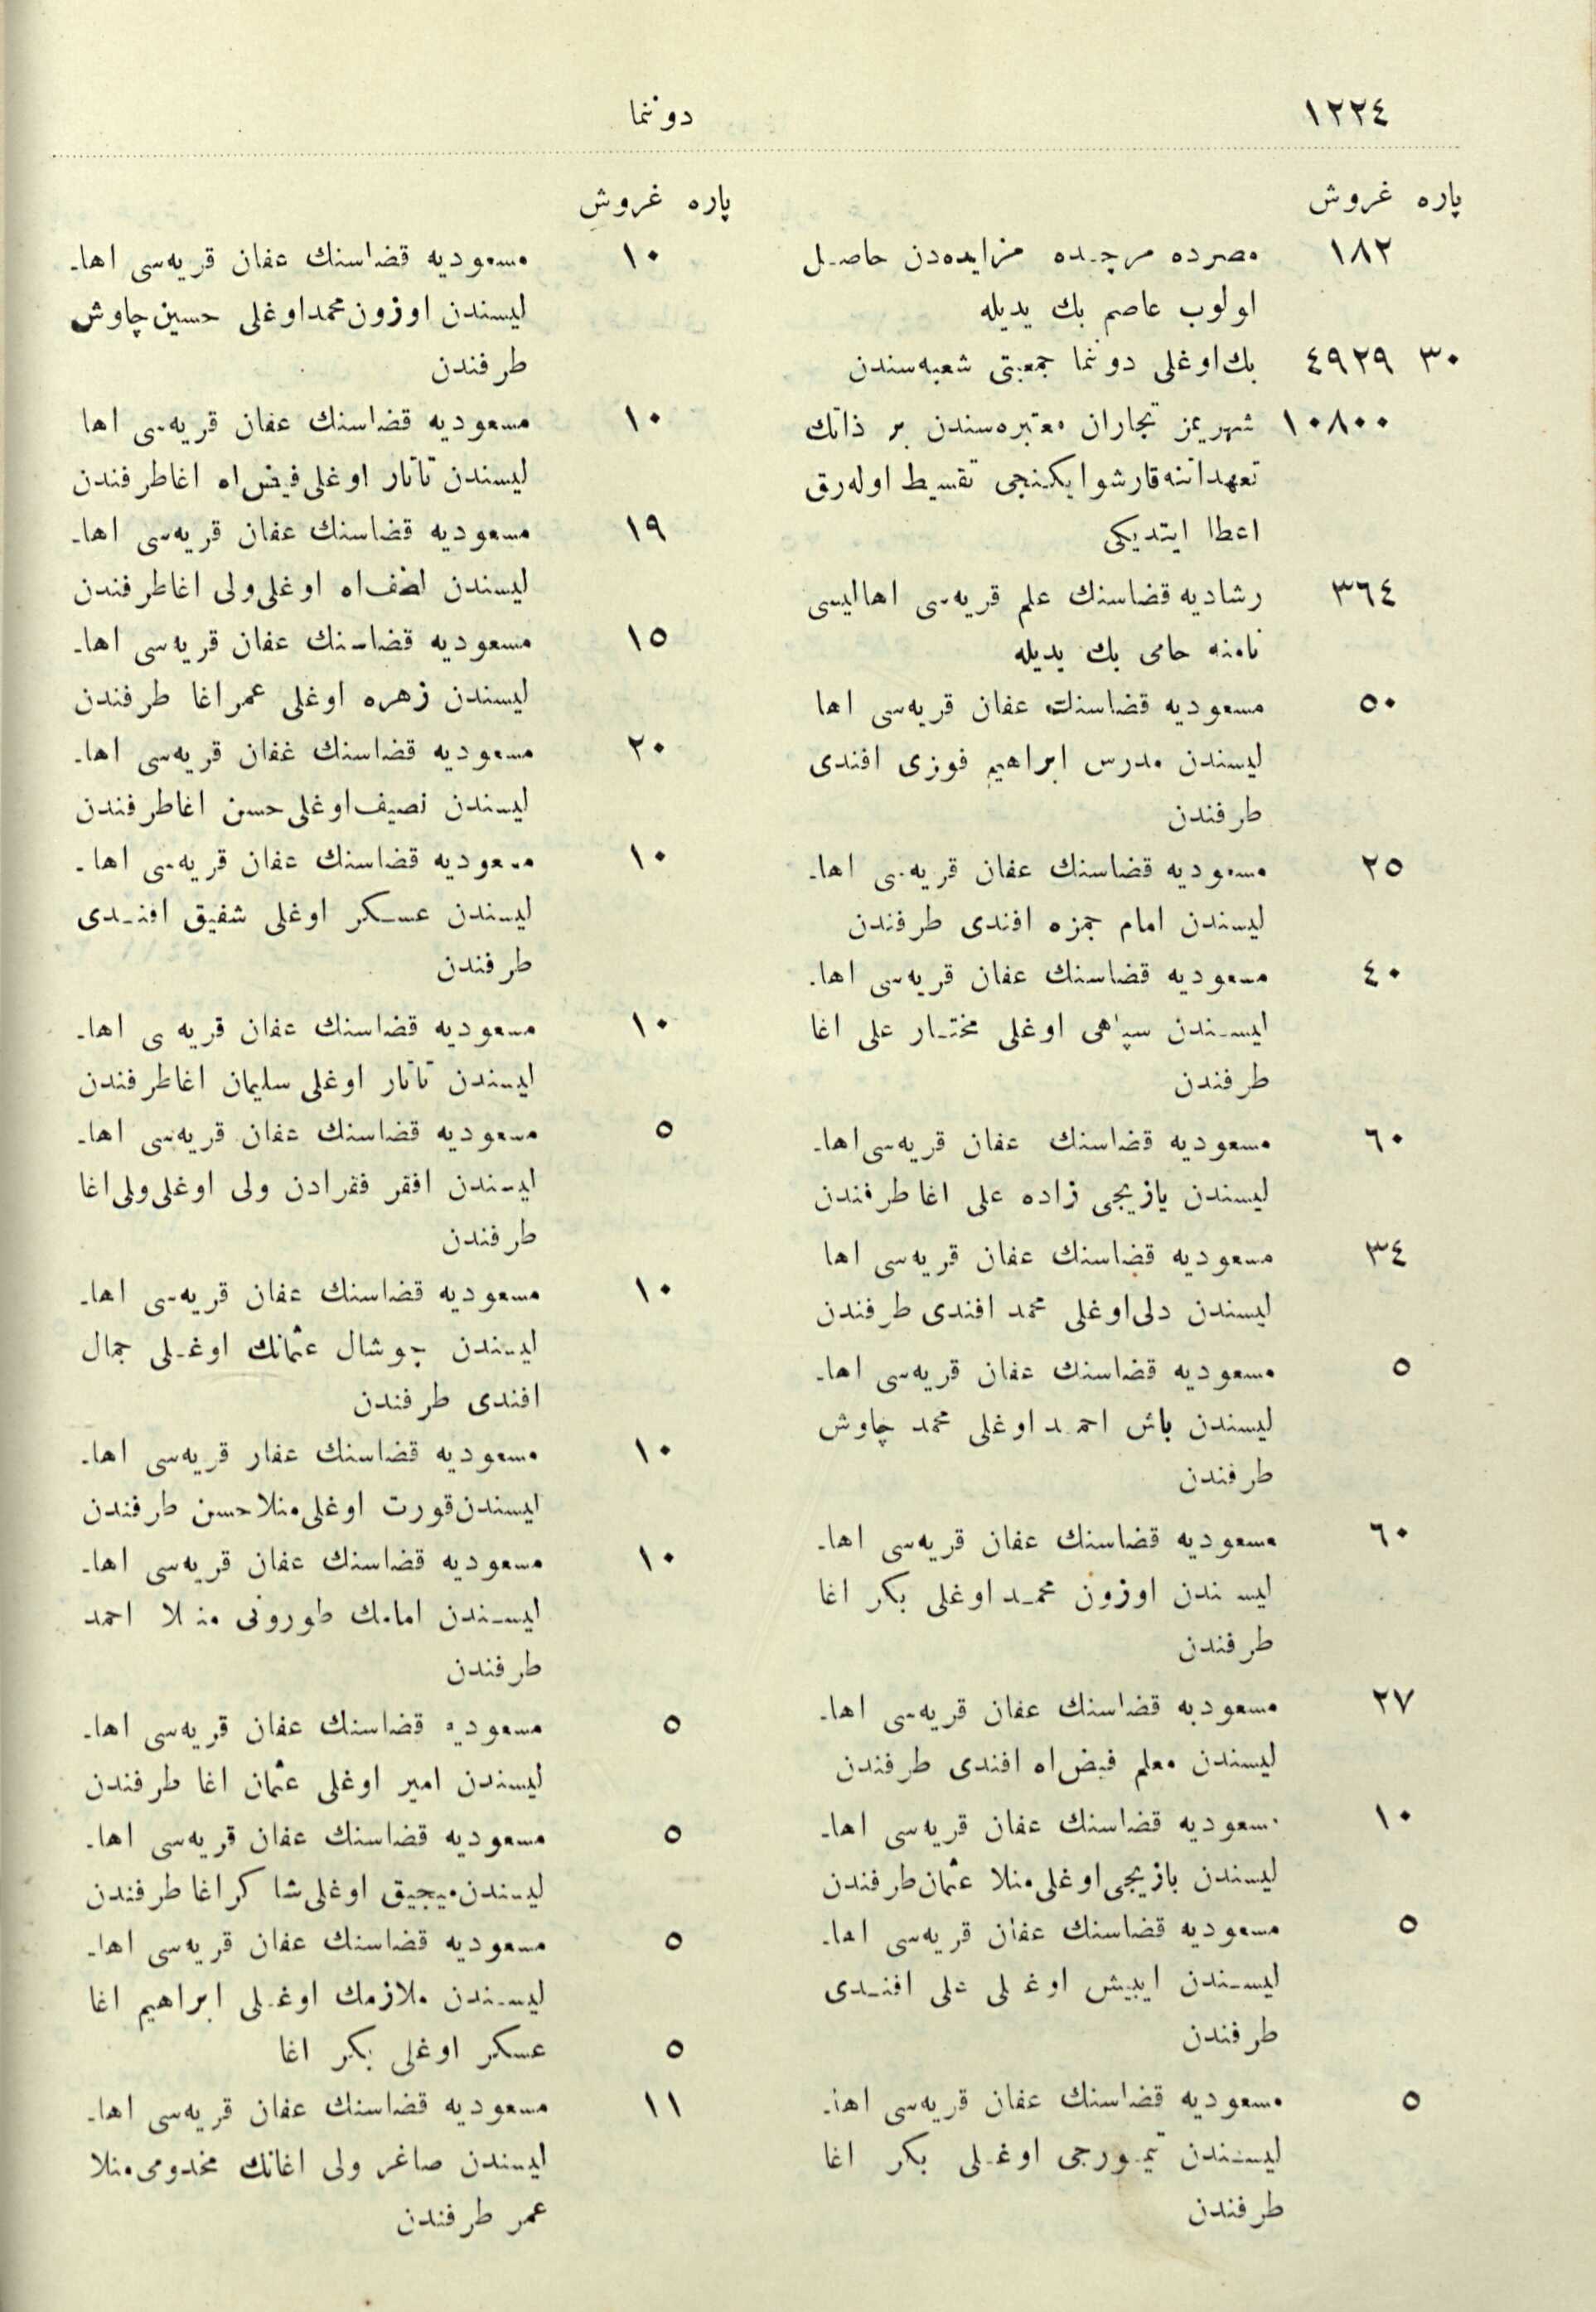 ١٢٢٤
دوننما
پاره غروش
١٨٢ مصرده مرجده مزايده‌دن حاصل
اولوب عاصم بك يديله
٣٠ ٤٩٢٩ بك‌اوغلى دوننما جمعيتى شعبه‌سندن
١٠٨٠٠ شهريمز تجاران معتبره‌سندن بر ذاتك
تعهداتنه قارشو ايكنجى تقسيط اوله‌رق
اعطا ايتديكى
٣٦٤ رشاديه قضاسنك علم قريه‌سى اهااليسى
نامنه حامى بك يديله
٥٠ مسعوديه قضاسنك عفان قريه‌سى اها
ليسندن مدرس ابراهيم فوزى افندى
طرفندن
٢٥ مسعوديه قضاسنك عفان قريه‌سى اها-
ليسندن امام حمزه افندى طرفندن
٤٠ مسعوديه قضاسنك عفان قريه‌سى اها-
ليسندن سپاهى اوغلى مختار على اغا
طرفندن
٦٠ مسعوديه قضاسنك عفان قريه‌سى اها-
ليسندن يازيجى زاده على اغا طرفندن
٣٤ مسعوديه قضاسنك عفان قريه‌سى اها
ليسندن دلى‌اوغلى محمد افندى طرفندن
٥ مسعوديه قضاسنك عفان قريه‌سى اها-
ليسندن باش احمد اوغلى محمد چاوش
طرفندن
٦٠ مسعوديه قضاسنك عفان قريه‌سى اها-
ليسندن اوزون محمد اوغلى بكر اغا
طرفندن
٢٧ مسعوديه قضاسنك عفان قريه‌سى اها-
ليسندن معلم فيض‌اه افندى طرفندن
١٠ مسعوديه قضاسنك عفان قريه‌سى اها-
ليسندن يازيجى‌اوغلى منلا عثمان طرفندن
٥ مسعوديه قضاسنك عفان قريه‌سى اها-
ليسندن ايبيش اوغلى على افندى
طرفندن
٥ مسعوديه قضاسنك عفان قريه‌سى اها-
ليسندن تيمورجى اوغلى بكر اغا
طرفندن
پاره غروش
١٠ مسعوديه قضاسنك عفان قريه‌سى اها-
ليسندن اوزون محمداوغلى حسين چاوش
طرفندن
١٠ مسعوديه قضاسنك عفان قريه‌سى اها
ليسندن تاتار اوغلى فيض‌اه اغا طرفندن
١٩ مسعوديه قضاسنك عفان قريه‌سى اها-
ليسندن لطف‌اه اوغلى ولى اغا طرفندن
١٥ مسعوديه قضاسنك عفان قريه‌سى اها-
ليسندن زهره اوغلى عمر اغا طرفندن
٢٠ مسعوديه قضاسنك غفان قريه‌سى اها-
ليسندن نصيف اوغلى حسن اغا طرفندن
١٠ مسعوديه قضاسنك عفان قريه‌سى اها-
ليسندن عسكر اوغلى شفيق افندى
طرفندن
١٠ مسعوديه قضاسنك عفان قريه‌سى اها-
ليسندن تاتار اوغلى سليمان اغا طرفندن
٥ مسعوديه قضاسنك عفان قريه‌سى اها-
ليسندن افقر فقرادن ولى اوغلى ولى اغا
طرفندن
١٠ مسعوديه قضاسنك عفان قريه‌سى اها-
ليسندن جوشال عثمانك اوغلى جمال
افندى طرفندن
١٠ مسعوديه قضاسنك عفار قريه‌سى اها-
ليسندن قورت اوغلى منلا حسن طرفندن
١٠ مسعوديه قضاسنك عفان قريه‌سى اها-
ليسندن امامك طورونى منلا احمد
طرفندن
٥ مسعوديه قضاسنك عفان قريه‌سى اها-
ليسندن امير اوغلى عثمان اغا طرفندن
٥ مسعوديه قضاسنك عفان قريه‌سى اها-
ليسندن ميجيق اوغلى شاكر اغا طرفندن
٥ مسعوديه قضاسنك عفان قريه‌سى اها-
ليسندن ملازمك اوغلى ابراهيم اغا
٥ عسكر اوغلى بكر اغا
١١ مسعوديه قضاسنك عفان قريه‌سى اها-
ليسندن صاغر ولى اغانك مخدومى منلا
عمر طرفندن